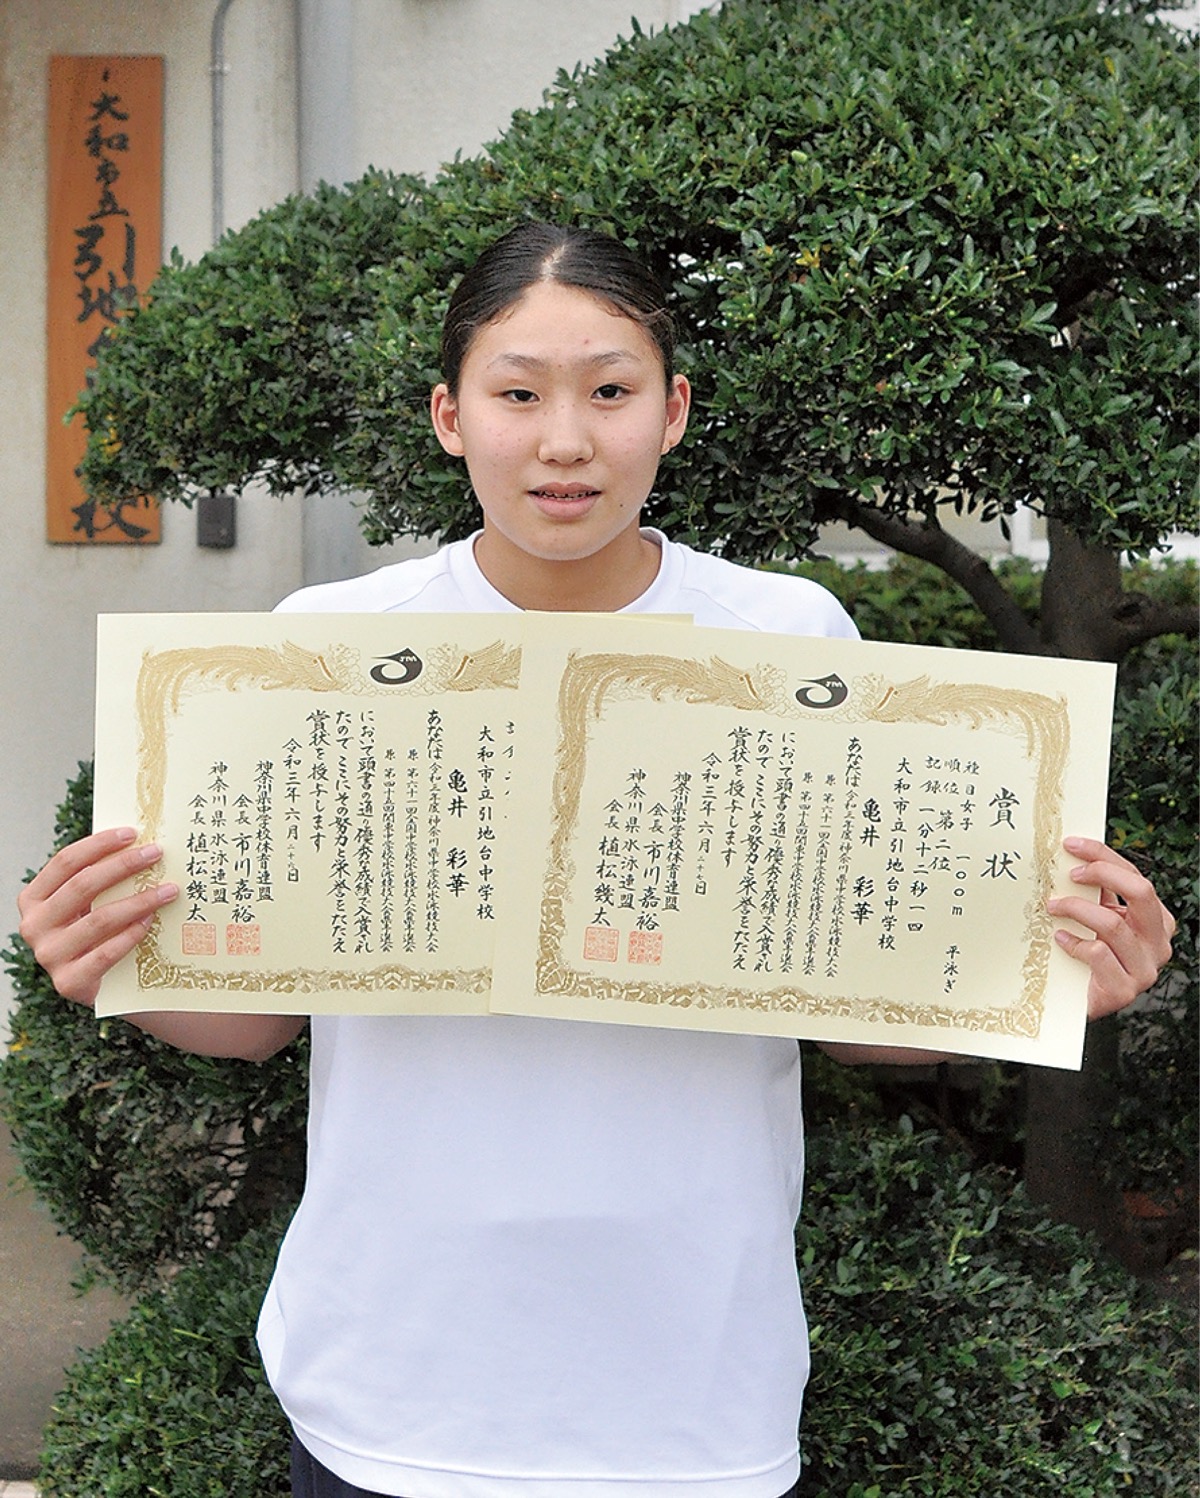 大和市立引地台
校
賞状
種目 女子 一〇〇m 平泳ぎ
順位 第二位
記録 一分十二秒一四
大和市立引地台中学校
亀井 彩華
あなたは令和三年度神奈川県中学校水泳競技大会
兼 第六十一回全国中学校水泳競技大会県予選会
兼 第四十五回関東中学校水泳競技大会県予選会
において頭書の通り優秀な成績で入賞され
たのでここにその努力と栄誉をたたえ
賞状を授与します
令和三年六月二十六日
神奈川県中学校体育連盟
会長 市川嘉裕
神奈川県水泳連盟
会長 植松幾太
大和市立引地台中学校
亀井 彩華
あなたは令和三年度神奈川県中学校水泳競技大会
兼 第六十一回全国中学校水泳競技大会県予選会
兼 第四十五回関東中学校水泳競技大会県予選会
において頭書の通り優秀な成績で入賞され
たのでここにその努力と栄誉をたたえ
賞状を授与します
令和三年六月二十七日
神奈川県中学校体育連盟
会長 市川嘉裕
神奈川県水泳連盟
会長 植松幾太